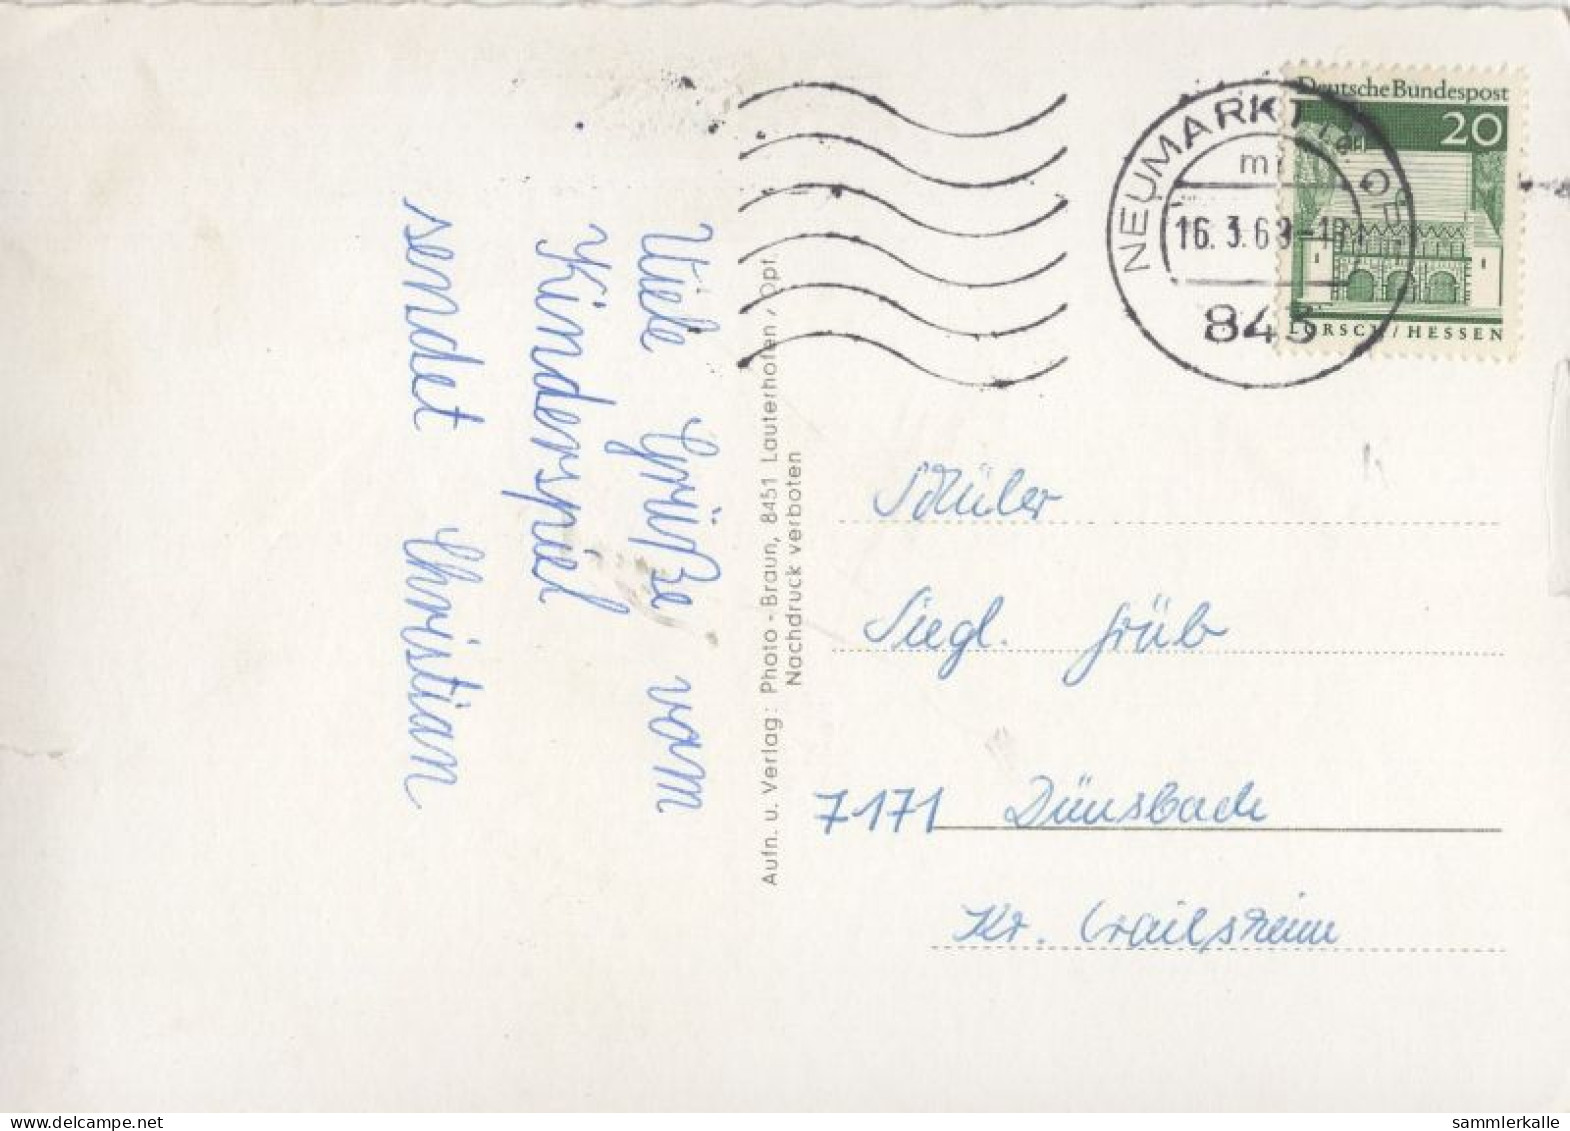 Viele Grüße vom
Kinderspiel
sendet Christian
Aufn. u. Verlag: Photo-Braun, 8451 Lauterhofen/Opf.
Nachdruck verboten
NEUMARKT
16. 3. 68-18
843
Deutsche Bundespost
20
LORSCH/HESSEN
Schüler
Siegl. Grüb
7171 Dünsbach
Kr. Crailsheim
www.delcampe.net
sammlerkalle